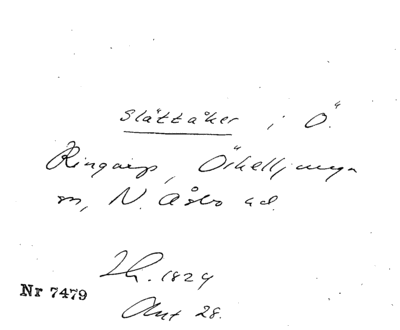 Slättåker i Ö.
Ringarp, Örkelljunga
sn, N. Åsbo hd.
Lh. 1824
Akt 28.
Nr 7479